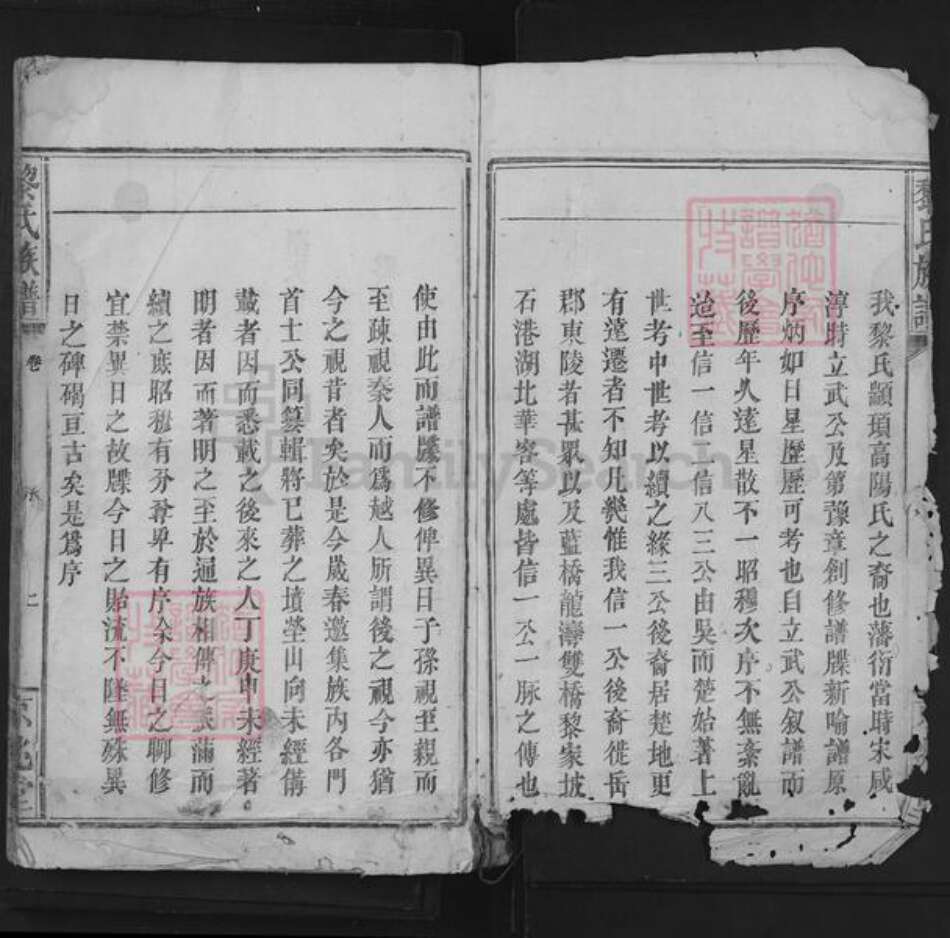 黎氏族譜
我黎氏顓頊高陽氏之裔也藩衍當時宋咸
淳時立武公及第豫章創修譜牒新喻譜原
序炳如日星歷歷可考也自立武公叙譜而
後歷年久遠星散不一昭穆次序不無紊亂
迨至信一信二信八三公由吳而楚始著上
世考中世考以續之緣三公後裔居楚地更
有遠遷者不知凡幾惟我信一公後裔徙岳
郡東陵者甚眾以及藍橋龍灣雙橋黎家坡
石港湖北華容等處皆信一公一脉之傳也
使由此而譜牒不修俾異日子孫視至親而
至疎視秦人而為越人所謂後之視今亦猶
今之視昔者矣於是今歲春邀集族內各門
首士公同纂輯將已葬之墳塋山向未經備
載者因而悉載之後來之人丁庚甲未經著
明者因而著明之至於通族相傳之派滿而
續之庶昭穆有分尊卑有序余今日之聊修
宜禁異日之故牒今日之貽流不墜無殊異
日之碑碣亘古矣是為序
黎氏族譜
卷
二
京兆堂
FamilySearch